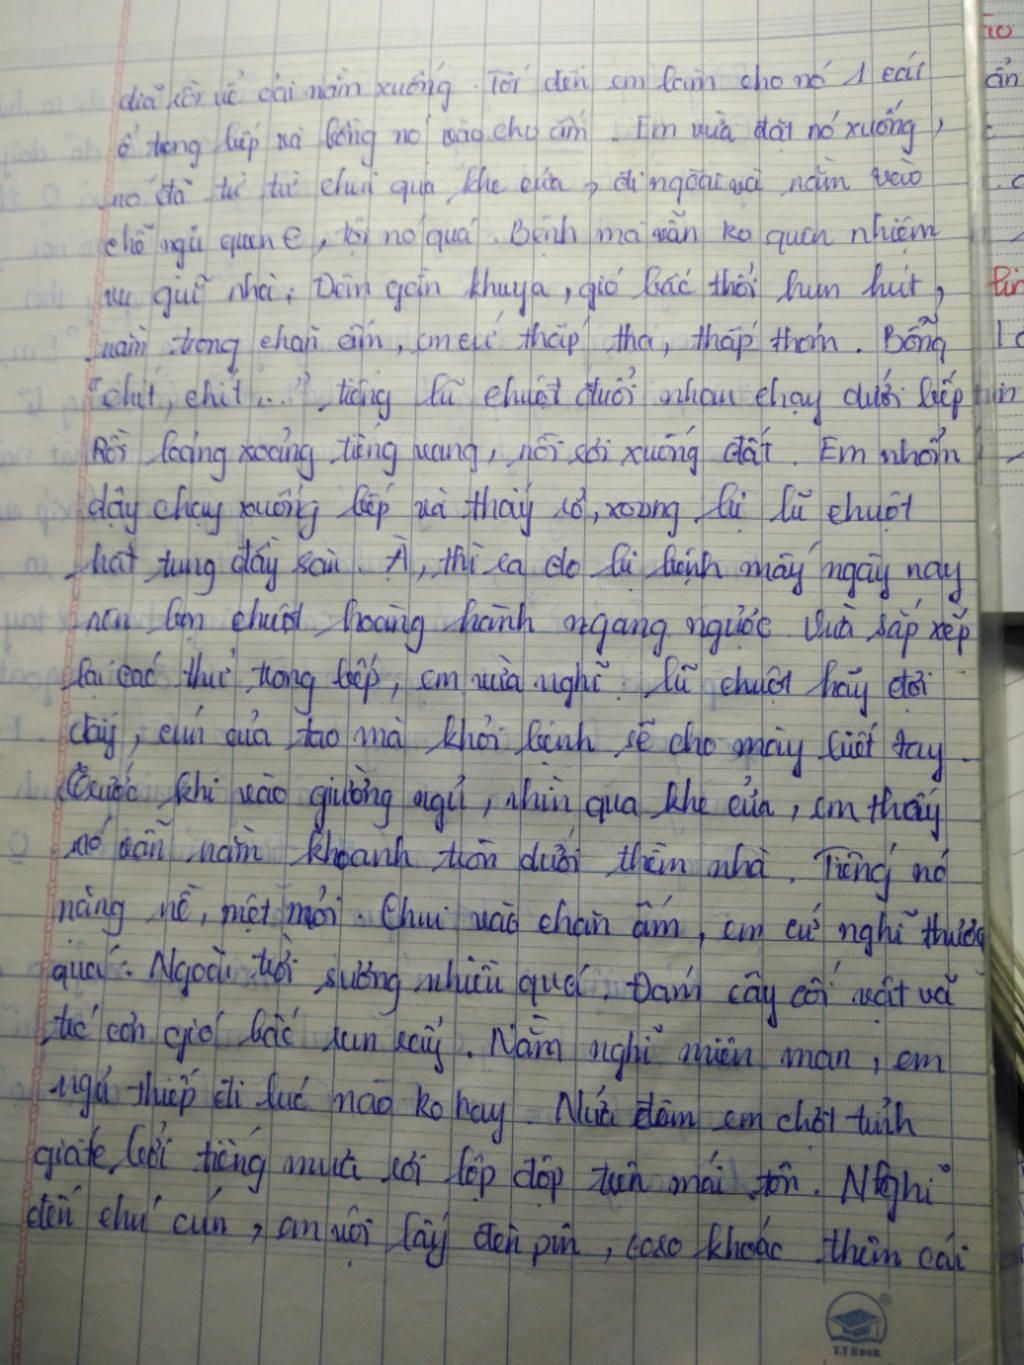 đĩa rồi về oải nằm xuống. Tối đến em làm cho nó 1 cái
ổ trong bếp và bồng nó vào cho ấm. Em vừa đặt nó xuống,
nó đã từ từ chui qua khe cửa, đi ngoài và nằm vào
chỗ ngủ quen, tội nó quá. Bệnh mà vẫn ko quên nhiệm
vụ giữ nhà. Đêm gần khuya, gió bấc thổi hun hút,
nằm trong chăn ấm, em cứ thấp tha, thấp thỏm. Bỗng
"chít, chít..." tiếng lũ chuột đuổi nhau chạy dưới bếp
Rồi loảng xoảng tiếng vang, nồi rơi xuống đất. Em nhổm
dậy chạy xuống bếp và thấy rổ, xoong bị lũ chuột
hất tung đầy sàn. À, thì ra do bị bệnh mấy ngày nay
nên bọn chuột hoành hành ngang ngược. Vừa sắp xếp
lại các thứ trong bếp, em vừa nghĩ: lũ chuột hãy đợi
đấy, cún của tao mà khỏi bệnh sẽ cho mày biết tay.
Trước khi vào giường ngủ, nhìn qua khe cửa, em thấy
nó vẫn nằm khoanh tròn dưới thềm nhà. Tiếng nó
nặng nề, mệt mỏi. Chui vào chăn ấm, em cứ nghĩ thương
quá. Ngoài trời sương nhiều quá. Đám cây cối vật vã
từ cơn gió bấc run rẩy. Nằm nghĩ miên man, em
ngủ thiếp đi lúc nào ko hay. Nửa đêm em chợt tỉnh
giấc bởi tiếng mưa rơi lộp độp trên mái tôn. Nghĩ
đến chú cún, em vội lấy đèn pin, khoác thêm cái
T.T Book